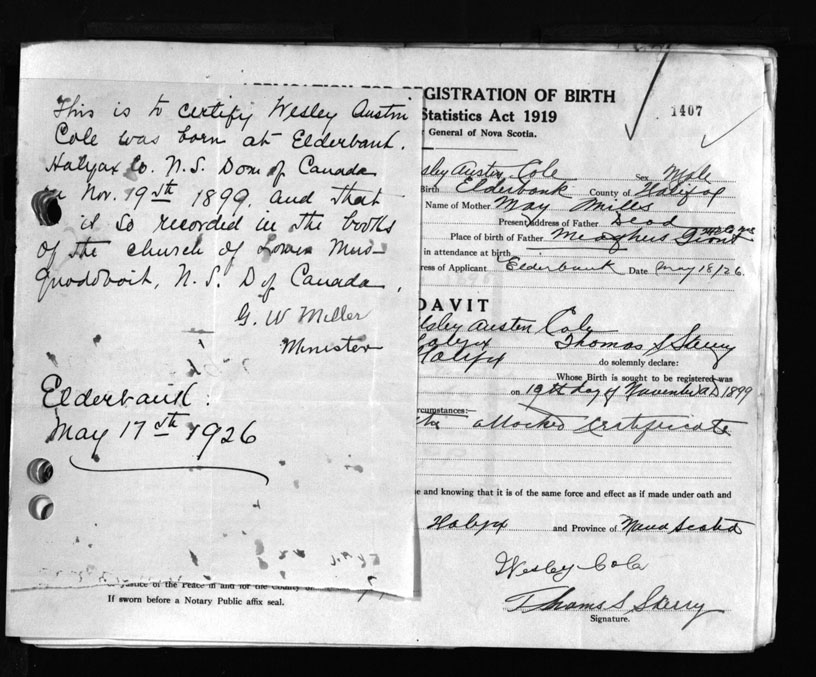 This is to certify Wesley Austin
Cole was born at Elderbank.
Halifax Co. N.S. Dom of Canada
on Nov. 19th 1899, and that
it is so recorded in the books
of the church of Lower Mus-
quodoboit, N.S. D of Canada.
G. W Miller
Minister
Elderbank.
May 17th 1926
GISTRATION OF BIRTH
Statistics Act 1919
General of Nova Scotia.
1407
sley Austin Cole Sex Male
Birth Elderbank County of Halifax
Name of Mother May Mills
Present Address of Father Dead
Place of birth of Father Meaghers Grant
in attendance at birth
ress of Applicant Elderbank Date May 18/26.
DAVIT
Wesley Austen Cole
Thomas S Sterry
Halifx do solemnly declare:
Whose Birth is sought to be registered was
on 19th day of November AD 1899
rcumstances:—
the attached Certificate
e and knowing that it is of the same force and effect as if made under oath and
Halifx and Province of Nova Scotia
Wesley Cole
Thomas S Sterry
Signature.
Justice of the Peace in and for the County of
If sworn before a Notary Public affix seal.